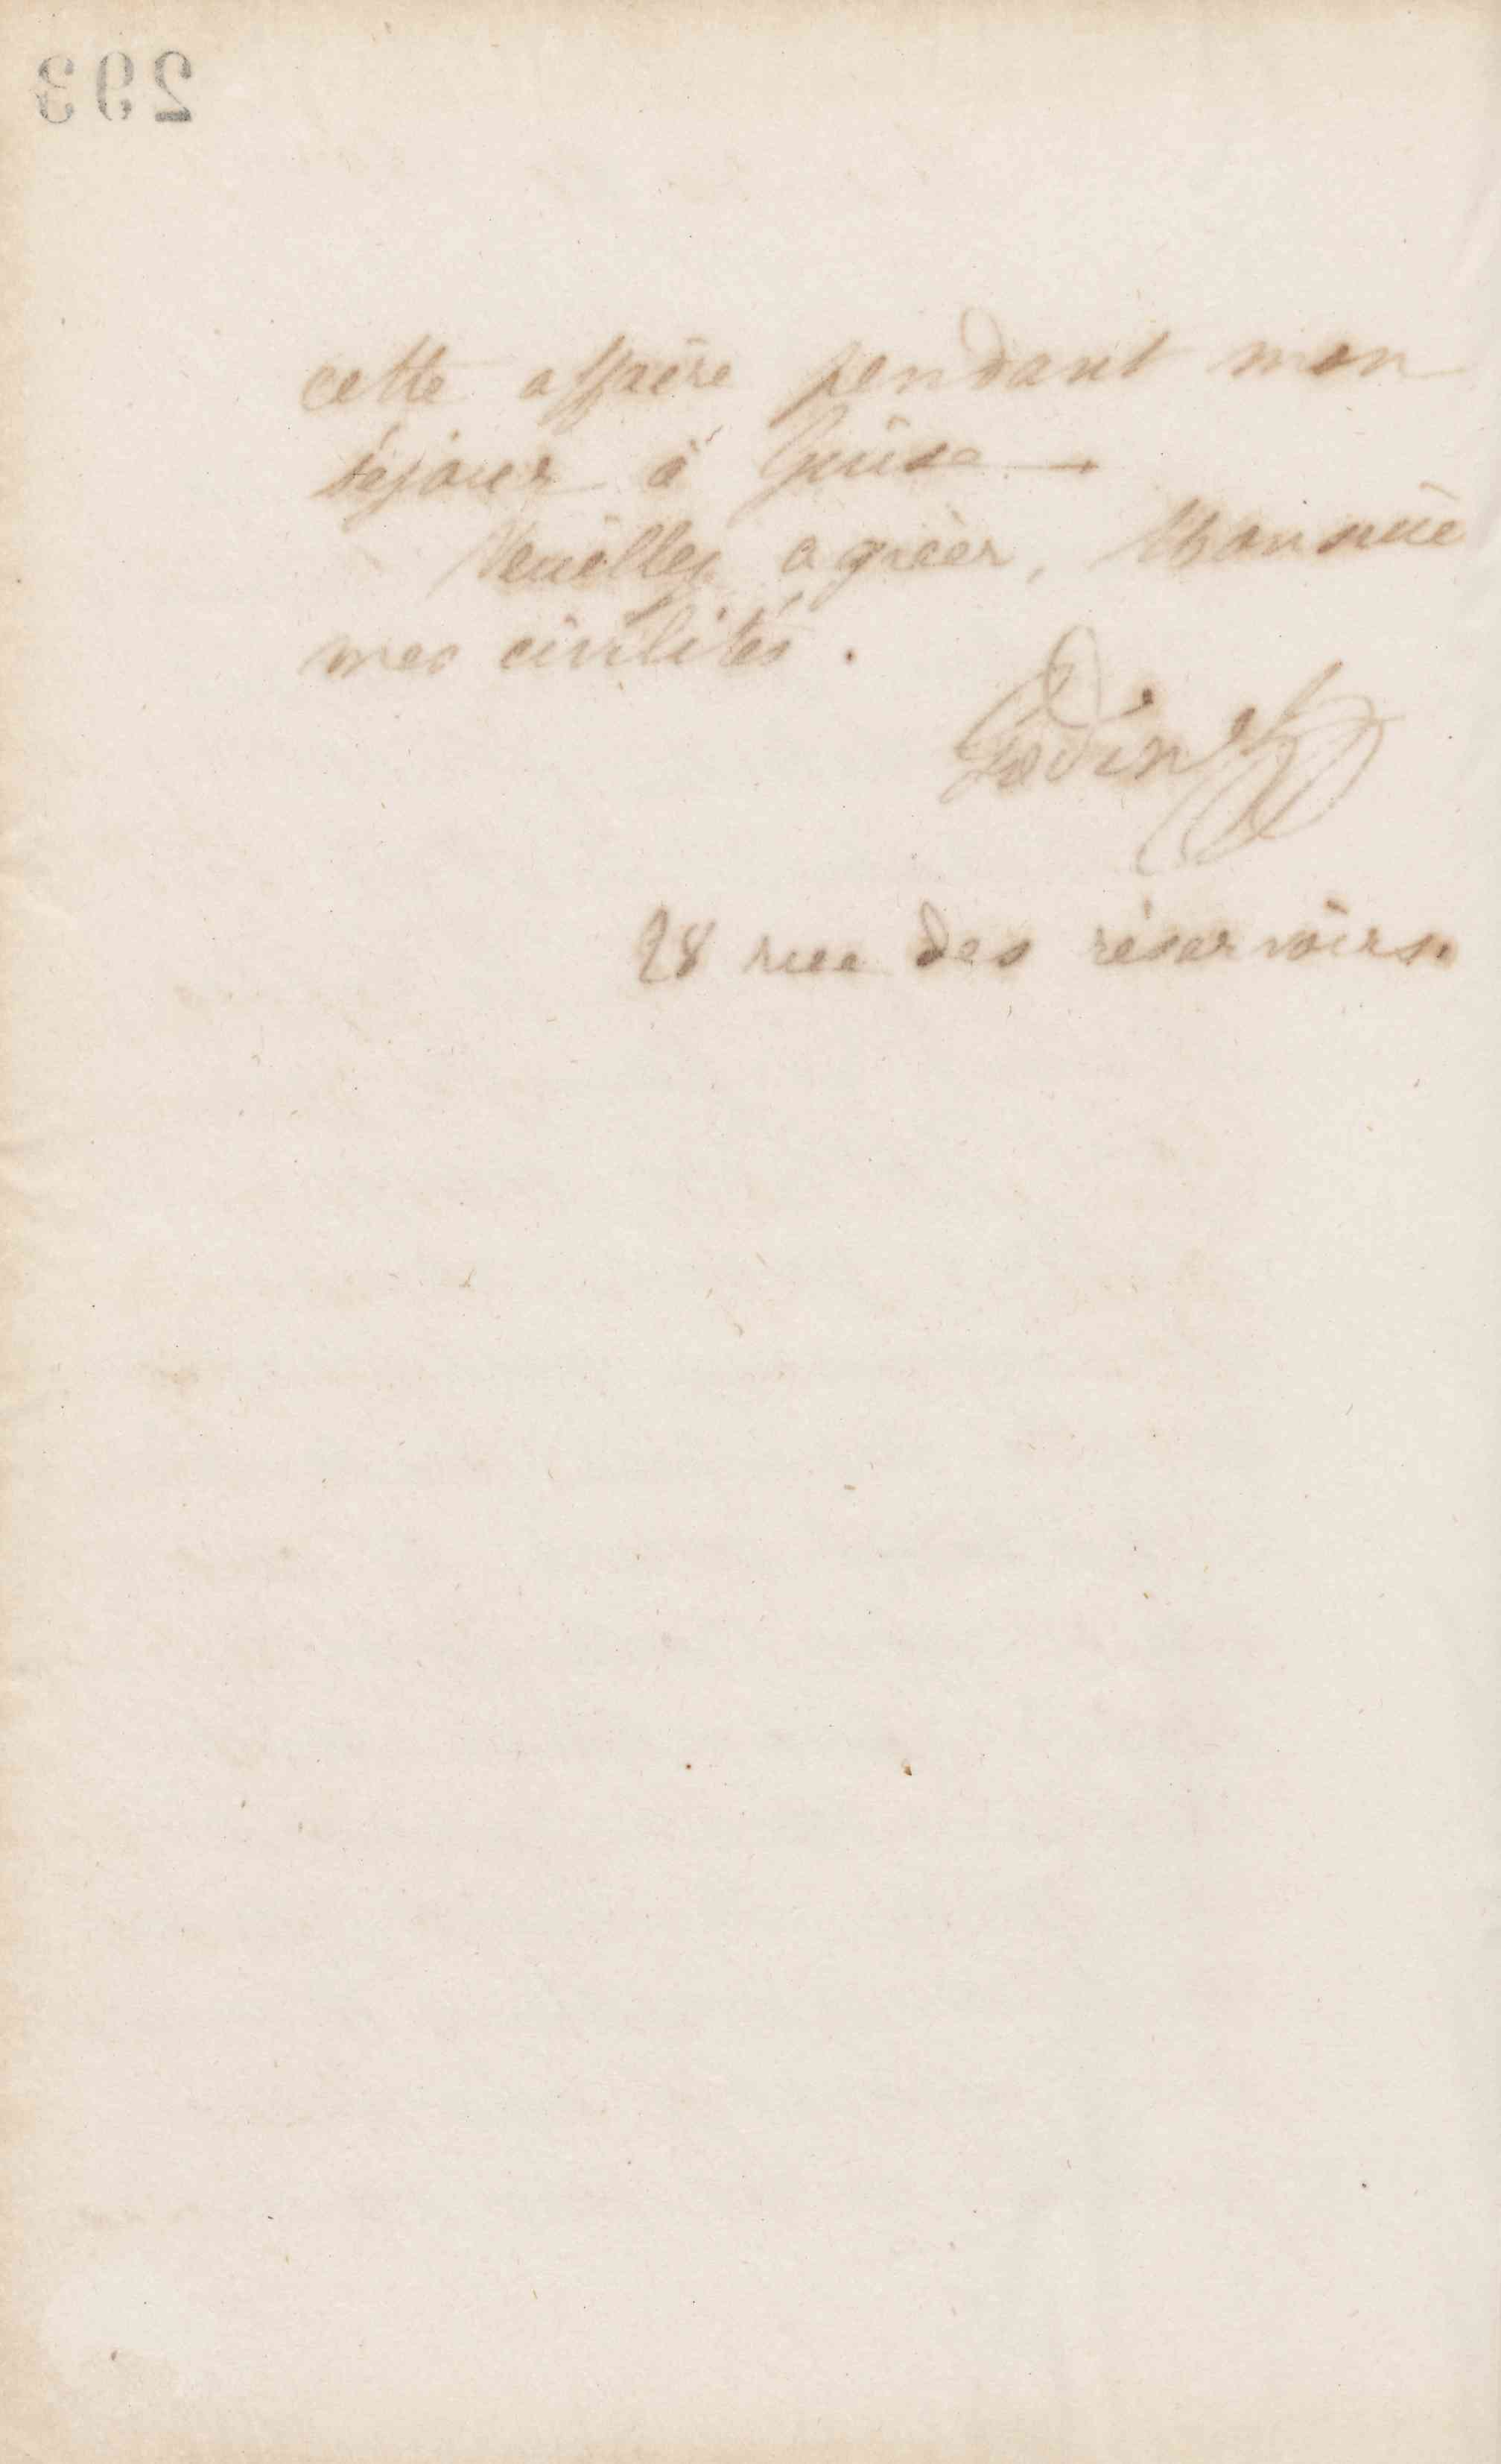 293
cette affaire pendant mon
séjour à Guise
Veuillez agréer, Monsieur
mes civilités.
Godin
28 rue des réservoirs.